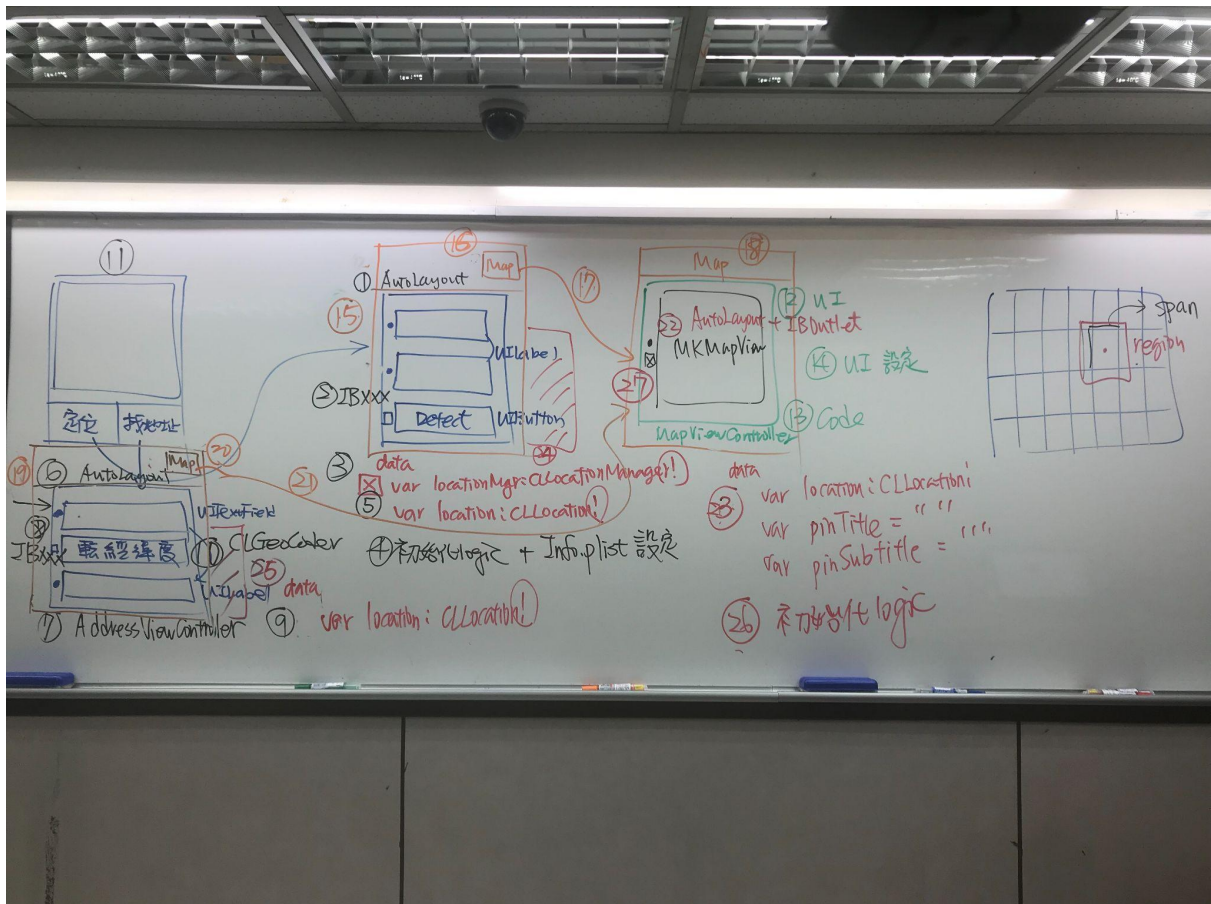 ⑪
定位
找地址
⑲
⑥ AutoLayout
Map
⑳
UITextField
⑧
IBXXX
轉經緯度
⑩ CLGeoCoder
UILabel
㉕
⑦ AddressViewController
data
⑨ var location: CLLocation!
㉑
⑯
Map
① AutoLayout
⑮
UILabel
② IBXXX
Detect
UIButton
㉔
⑰
③ data
var locationMgr: CLLocationManager!
⑤ var location: CLLocation!
④ 初始化logic + Info.plist 設定
⑱
Map
⑫ UI
㉒ AutoLayout + IBOutlet
MKMapView
⑭ UI 設定
㉗
⑬ Code
MapViewController
data
㉓ var location: CLLocation!
var pinTitle = " "
var pinSubtitle = " "
㉖ 初始化 logic
span
region